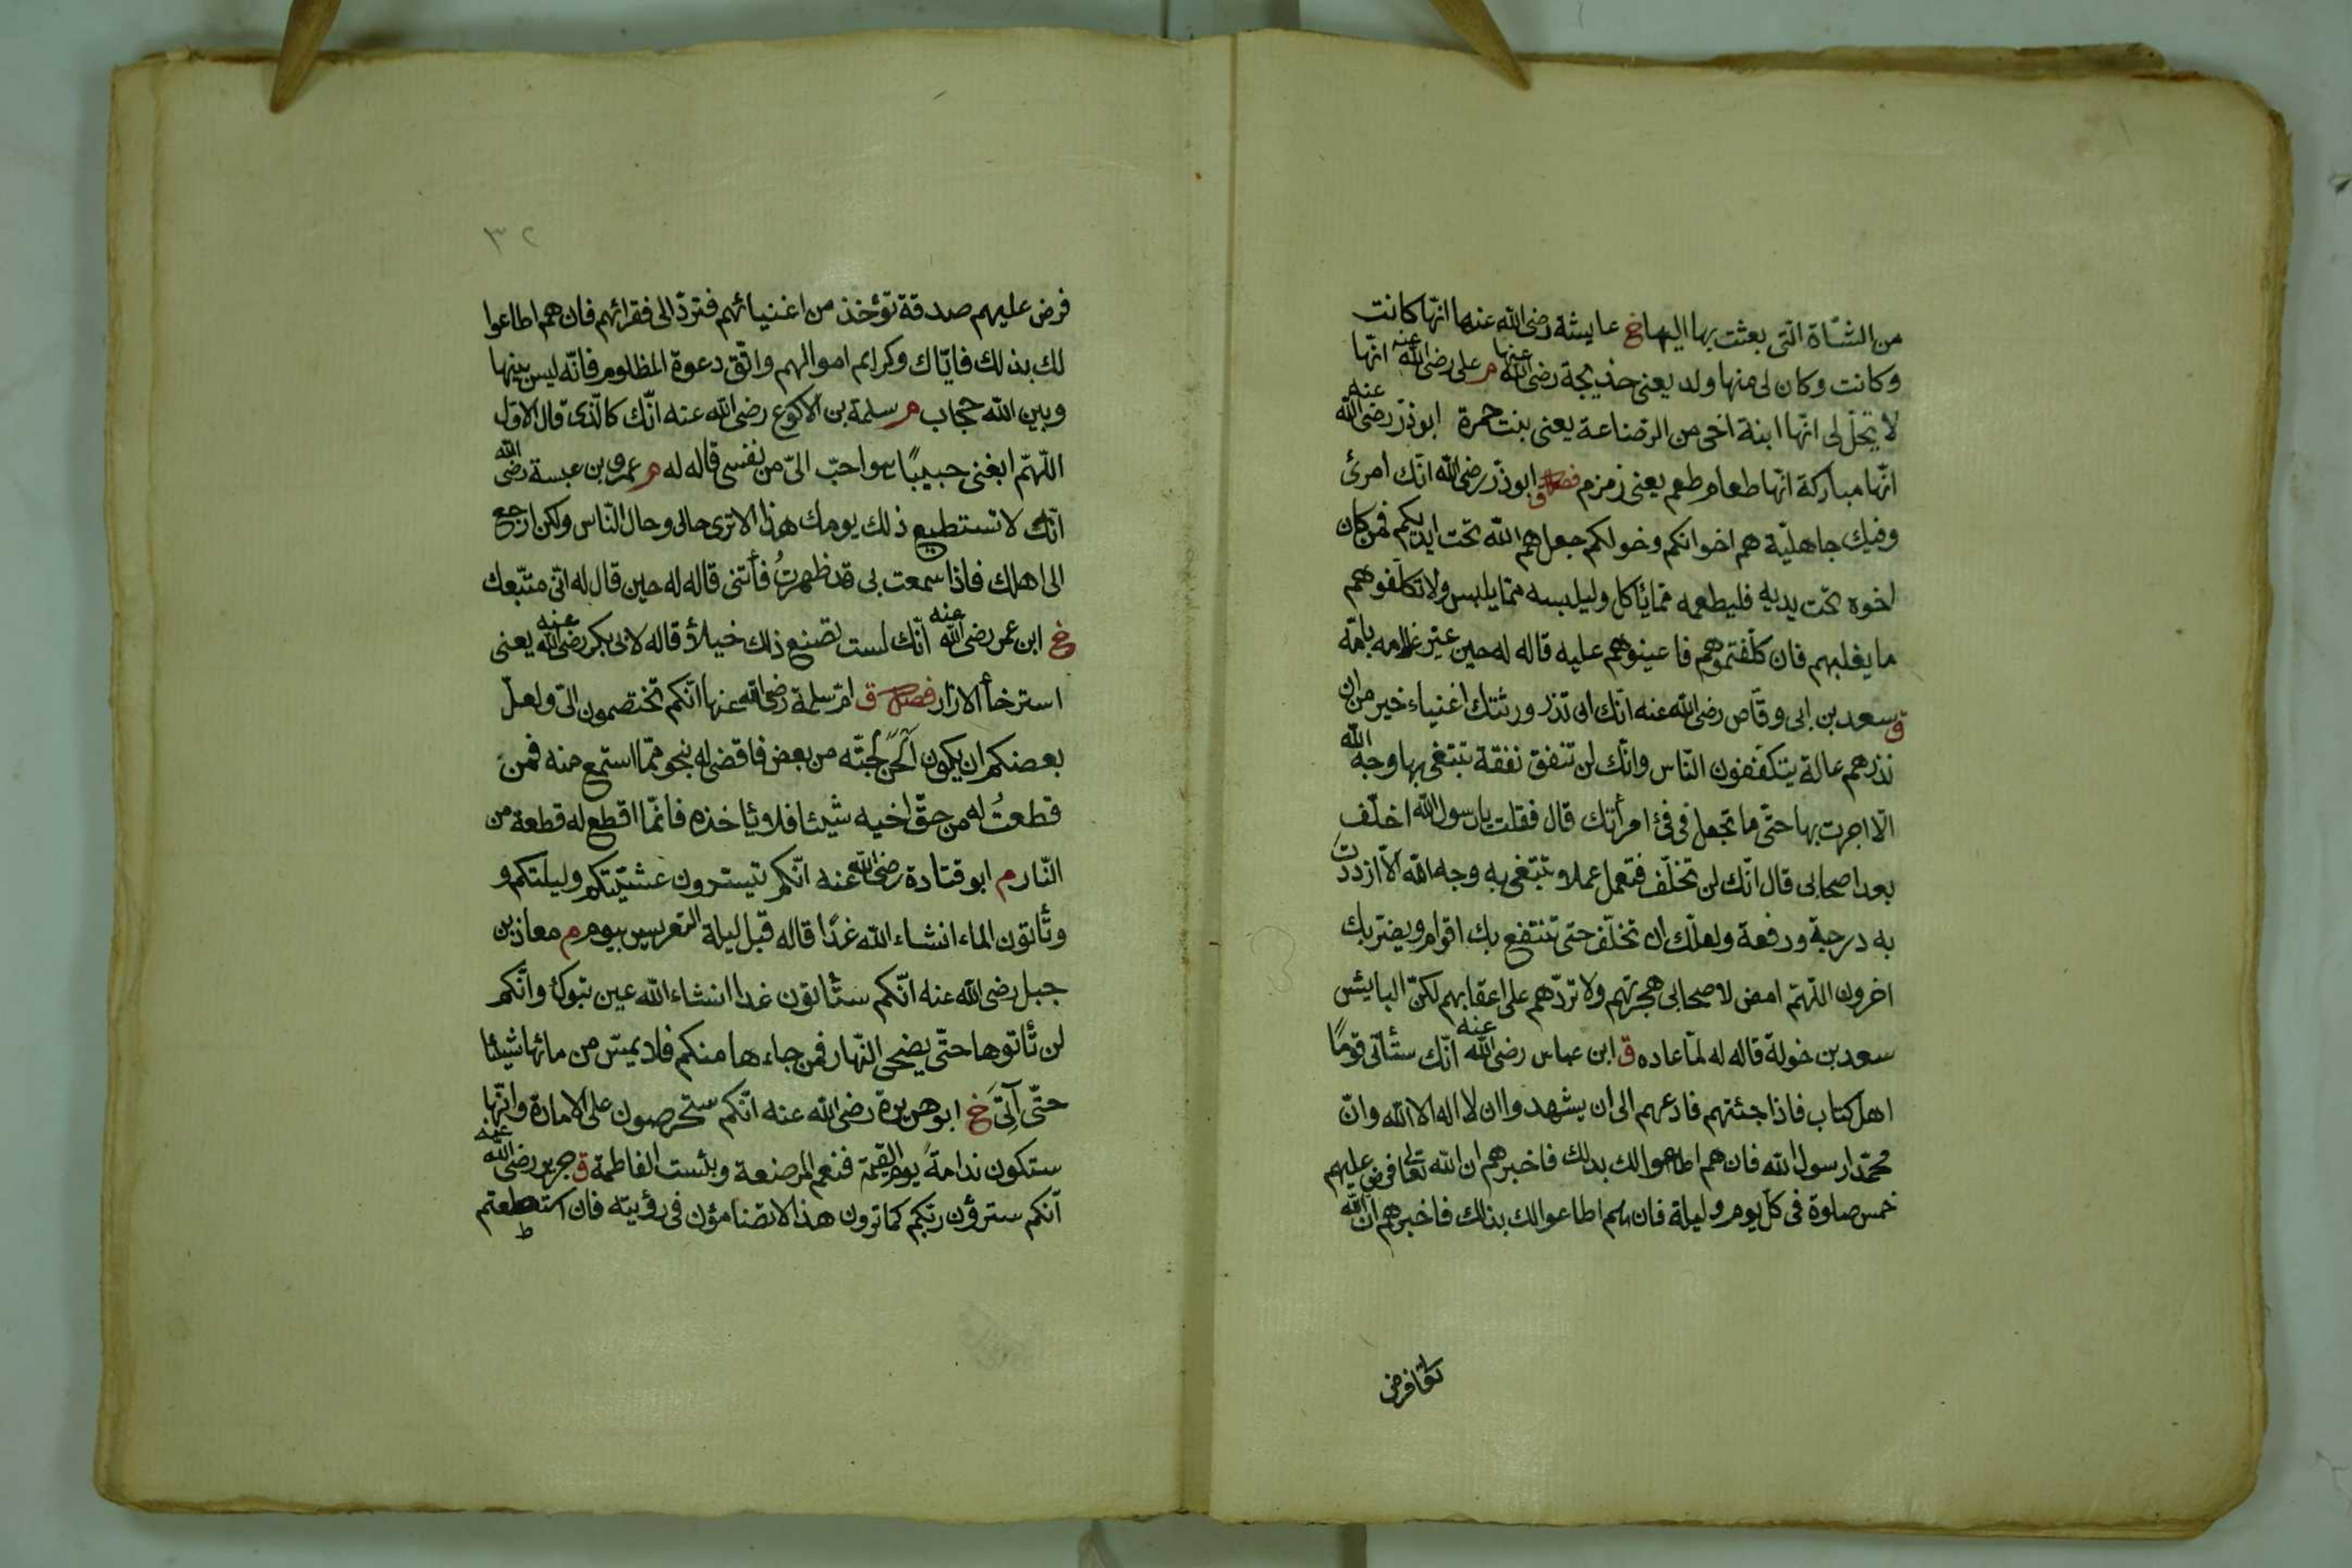 من الشاة التى بعثت بها اليها خ عايشة رضى الله عنها انّها كانت
وكانت وكان لى منها ولد يعنى خديجة رضى الله عنها م على رضى الله عنه انّها
لا تحلّ لى انّها ابنة اخى من الرضاعة يعنى بنت حمزة ابوذرّ رضى الله عنه
انّها مباركة انّها طعام طعم يعنى زمزم فصل ق ابوذرّ رضى الله انّك امرئ
وفيك جاهليّة هم اخوانكم وخولكم جعلهم الله تحت ايديكم فمن كان
اخوه تحت يديه فليطعمه ممّا يأكل وليلبسه ممّا يلبس ولا تكلّفوهم
ما يغلبهم فان كلّفتموهم فاعينوهم عليه قاله له حين عيّر غلامه بامّه
ق سعد بن ابى وقّاص رضى الله عنه انّك ان تذر ورثتك اغنياء خير من ان
تذرهم عالة يتكفّفون النّاس وانّك لن تنفق نفقة تبتغى بها وجه الله
الّا اجرت بها حتّى ما تجعل فى فئ امرأتك قال فقلت يا رسول الله اخلّف
بعد اصحابى قال انّك لن تخلّف فتعمل عملا تبتغى به وجه الله الّا ازددت
به درجة ورفعة ولعلّك ان تخلّف حتى تنتفع بك اقوام ويضرّ بك
اخرون اللّهمّ امض لاصحابى هجرتهم ولا تردّهم على اعقابهم لكنّ البايئس
سعد بن خولة قاله له لمّا عاده ق ابن عباس رضى الله عنه انّك ستأتى قومًا
اهل كتاب فاذا جئتهم فادعهم الى ان يشهدوا ان لا اله الا الله وانّ
محمّدا رسول الله فان هم اطاعوا لك بذلك فاخبرهم ان الله تعالى فرض عليهم
خمس صلوة فى كلّ يوم وليلة فان هم اطاعوا لك بذلك فاخبرهم انّ الله
تعا فرض
٣٢
فرض عليهم صدقة تؤخذ من اغنيائهم فتردّ الى فقرائهم فان هم اطاعوا
لك بذلك فايّاك وكرايم اموالهم واتّق دعوة المظلوم فانّه ليس بينها
وبين الله حجاب م سلمة بن الاكوع رضى الله عنه انّك كالّذى قال الاوّل
اللّهمّ ابغنى حبيبًا هو احبّ الىّ من نفسى قاله له م عمرو بن عبسة رضى الله
انّك لا تستطيع ذلك يومك هذا الا ترى حالى وحال النّاس ولكن ارجع
الى اهلك فاذا سمعت بى قد ظهرتُ فأتنى قاله له حين قال له انّى متّبعك
خ ابن عمر رضى الله عنه انّك لست تصنع ذلك خيلأ قاله لابى بكر رضى الله عنه يعنى
استرخأ الازار فصل ق امّ سلمة رضى الله عنها انّكم تختصمون الىّ ولعلّ
بعضكم ان يكون الحن بحجّته من بعض فاقضى له بنحو ممّا استمع منه فمن
قطعتُ له من حقّ اخيه شيئا فلا يأخذه فانّما اقطع له قطعة من
النّار م ابو قتادة رضى الله عنه انّكم تيسترون عشيّتكم وليلتكم و
وتأتون الماء انشاء الله غدًا قاله قبل ليلة التعريس بيوم م معاذ بن
جبل رضى الله عنه انّكم ستأتون غدا انشاء الله عين تبوك وانّكم
لن تأتوها حتّى يضحى النّهار فمن جاءها منكم فلا يمسّ من مائها شيئا
حتّى آتِىَ خ ابو هريرة رضى الله عنه انّكم ستحرصون على الامارة وانّها
ستكون ندامةً يوم القيمة فنعم المرضعة وبئست الفاطمة ق جرير رضى الله عنه
انّكم سترؤن ربّكم كما ترون هذا لا تضامؤن فى رؤيته فان استطعتم